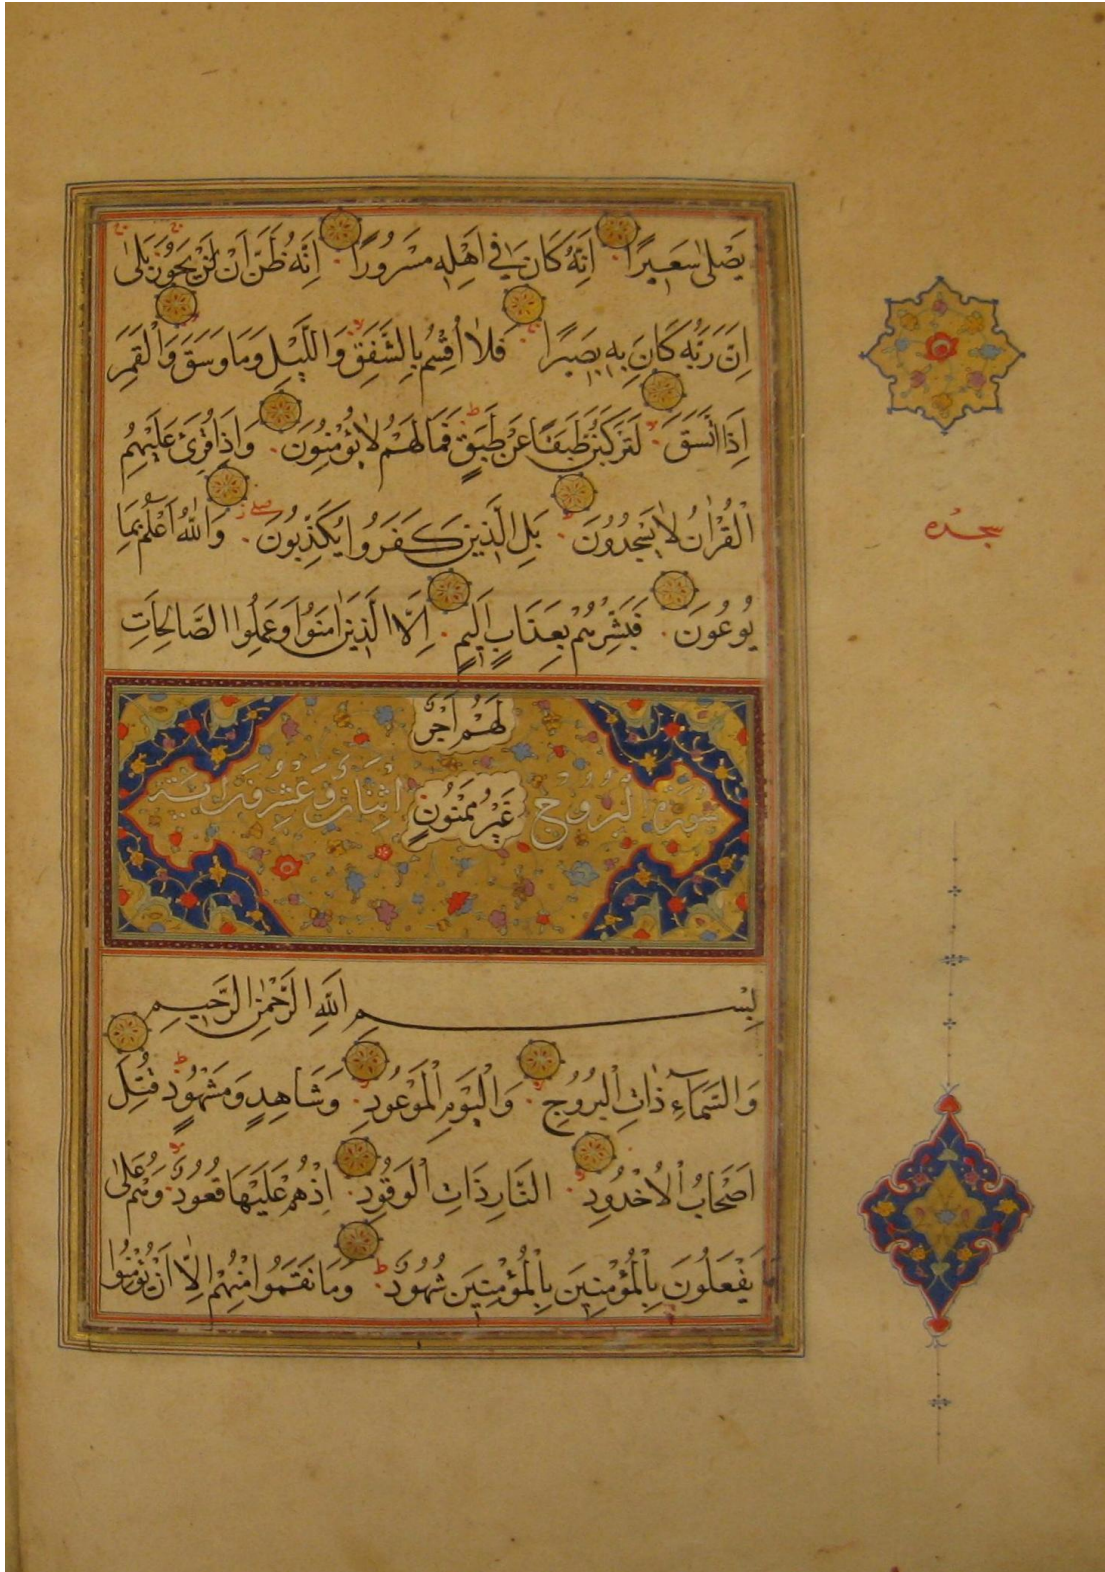 يَصْلٰى سَعِيرًا اِنَّهُ كَانَ فِي اَهْلِهِ مَسْرُورًا اِنَّهُ ظَنَّ اَنْ لَنْ يَحُورَ بَلٰى
اِنَّ رَبَّهُ كَانَ بِهِ بَصِيرًا فَلَا اُقْسِمُ بِالشَّفَقِ وَاللَّيْلِ وَمَا وَسَقَ وَالْقَمَرِ
اِذَا اتَّسَقَ لَتَرْكَبُنَّ طَبَقًا عَنْ طَبَقٍ فَمَا لَهُمْ لَا يُؤْمِنُونَ وَاِذَا قُرِئَ عَلَيْهِمُ
الْقُرْاٰنُ لَا يَسْجُدُونَ بَلِ الَّذِينَ كَفَرُوا يُكَذِّبُونَ وَاللّٰهُ اَعْلَمُ بِمَا
سجده
يُوعُونَ فَبَشِّرْهُمْ بِعَذَابٍ اَلِيمٍ اِلَّا الَّذِينَ اٰمَنُوا وَعَمِلُوا الصَّالِحَاتِ
لَهُمْ اَجْرٌ
غَيْرُ مَمْنُونٍ
سورة البروج اثنان وعشرون اية
بِسْمِ اللّٰهِ الرَّحْمٰنِ الرَّحِيمِ
وَالسَّمَآءِ ذَاتِ الْبُرُوجِ وَالْيَوْمِ الْمَوْعُودِ وَشَاهِدٍ وَمَشْهُودٍ قُتِلَ
اَصْحَابُ الْاُخْدُودِ النَّارِ ذَاتِ الْوَقُودِ اِذْ هُمْ عَلَيْهَا قُعُودٌ وَهُمْ عَلٰى
مَا يَفْعَلُونَ بِالْمُؤْمِنِينَ بِالْمُؤْمِنِينَ شُهُودٌ وَمَا نَقَمُوا مِنْهُمْ اِلَّا اَنْ يُؤْمِنُوا